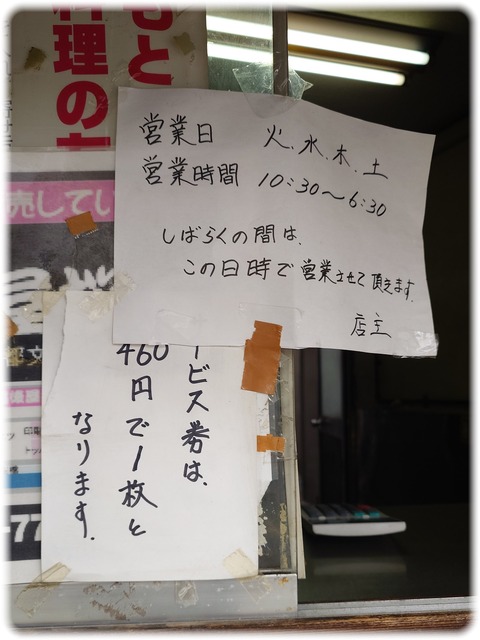 営業日 火、水、木、土
営業時間 10:30～6:30
しばらくの間は、
この日時で営業させて頂きます。
店主
ービス券は、
460円で1枚と
なります。
もと
料理の
売してい
-77